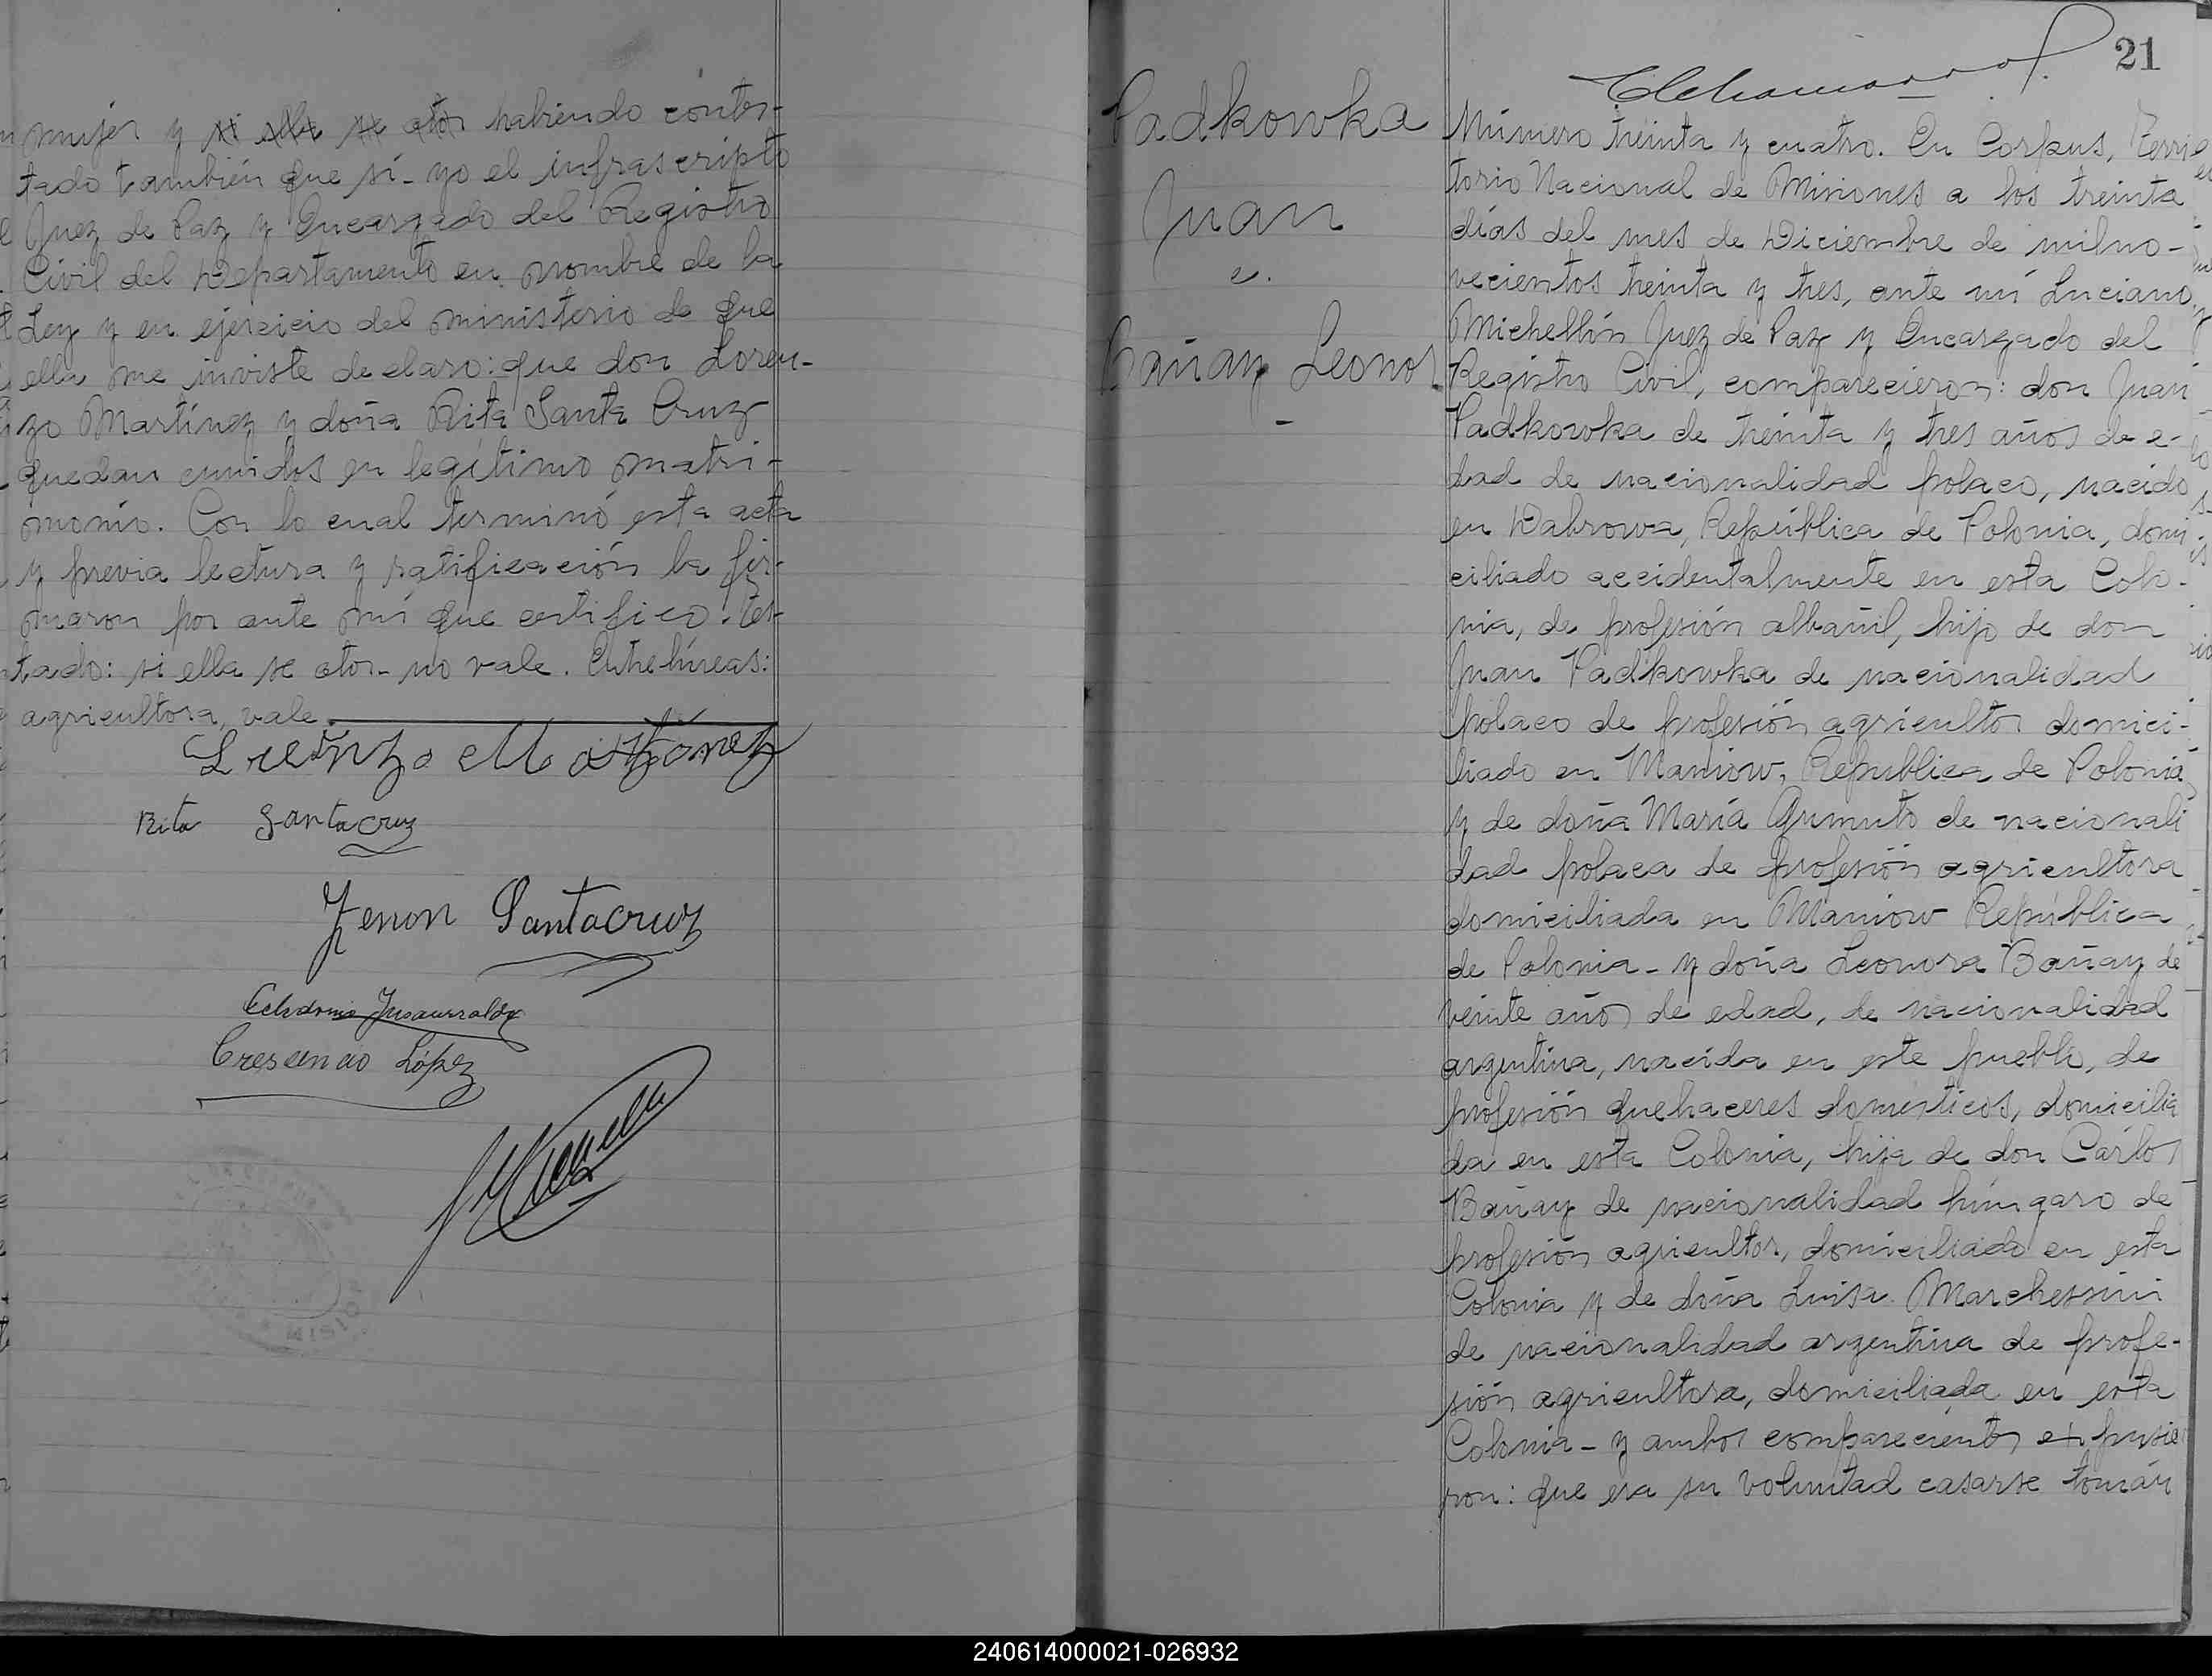 mujer y si ella se otor habiendo contes-
tado también que sí - yo el infrascripto
Juez de Paz y Encargado del Registro
Civil del Departamento en nombre de la
Ley y en ejercicio del ministerio de que
ella me inviste declaro: que don Loren-
zo Martínez y doña Rita Santa Cruz
quedan unidos en legítimo matri-
monio. Con lo cual terminó esta acta
y previa lectura y ratificación la fir-
maron por ante mí que certifico. Tes-
tado: si ella se otor - no vale. Entrelíneas:
agricultora, vale.
Lorenzo Martínez
Rita Santacruz
Zenon Santacruz
Celidonio Insaurralde
Crescencio López
21
Padkowka
Juan
e.
Bañay Leonor
-
Número treinta y cuatro. En Corpus, Terri
torio Nacional de Misiones a los treinta
días del mes de Diciembre de milno-
vecientos treinta y tres, ante mí Luciano
Michellón Juez de Paz y Encargado del
Registro Civil, comparecieron: don Juan
Padkowka de treinta y tres años de e-
dad de nacionalidad polaco, nacido
en Dabrowa, República de Polonia, domi
ciliado accidentalmente en esta Colo-
nia, de profesión albañil, hijo de don
Juan Padkowka de nacionalidad
polaco de profesión agricultor domici-
liado en Maniow, República de Polonia
y de doña María Gumuto de nacionali
dad polaca de profesión agricultora
domiciliada en Maniow República
de Polonia - y doña Leonora Bañay de
veinte años de edad, de nacionalidad
argentina, nacida en este pueblo, de
profesión quehaceres domésticos, domicilia
da en esta Colonia, hija de don Carlos
Bañay de nacionalidad húngaro de
profesión agricultor, domiciliado en esta
Colonia y de doña Luisa Marchessini
de nacionalidad argentina de profe-
sión agricultora, domiciliada en esta
Colonia - y ambos comparecientes expusie
ron: que era su voluntad casarse tomán
240614000021-026932